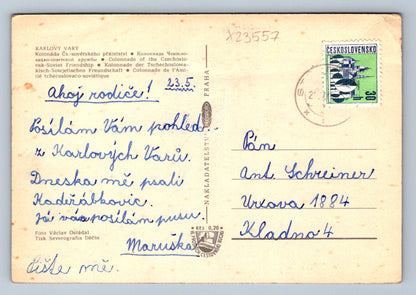 KARLOVY VARY
Kolonáda Čs.-sovětského přátelství
Colonnade of the Czechoslo-
vak-Soviet Friendship
Kolonnade der Tschechoslowa-
kisch-Sowjetischen Freundschaft
Colonnade de l'Ami-
tié tchécoslovaco-soviétique
x23557
Ahoj rodiče!
23.5.
Posílám Vám pohled
z Karlových Varů.
Dneska mě psali
Já vás posílám pusu
Maruška
Pište mě.
Foto Václav
Tisk Severografia Děčín
NAKLADATELSTVÍ
PRAHA
Kčs 0,20
ČESKOSLOVENSKO
30 h
Pán
Ant. Schreiner
Urxova 1884
Kladno 4